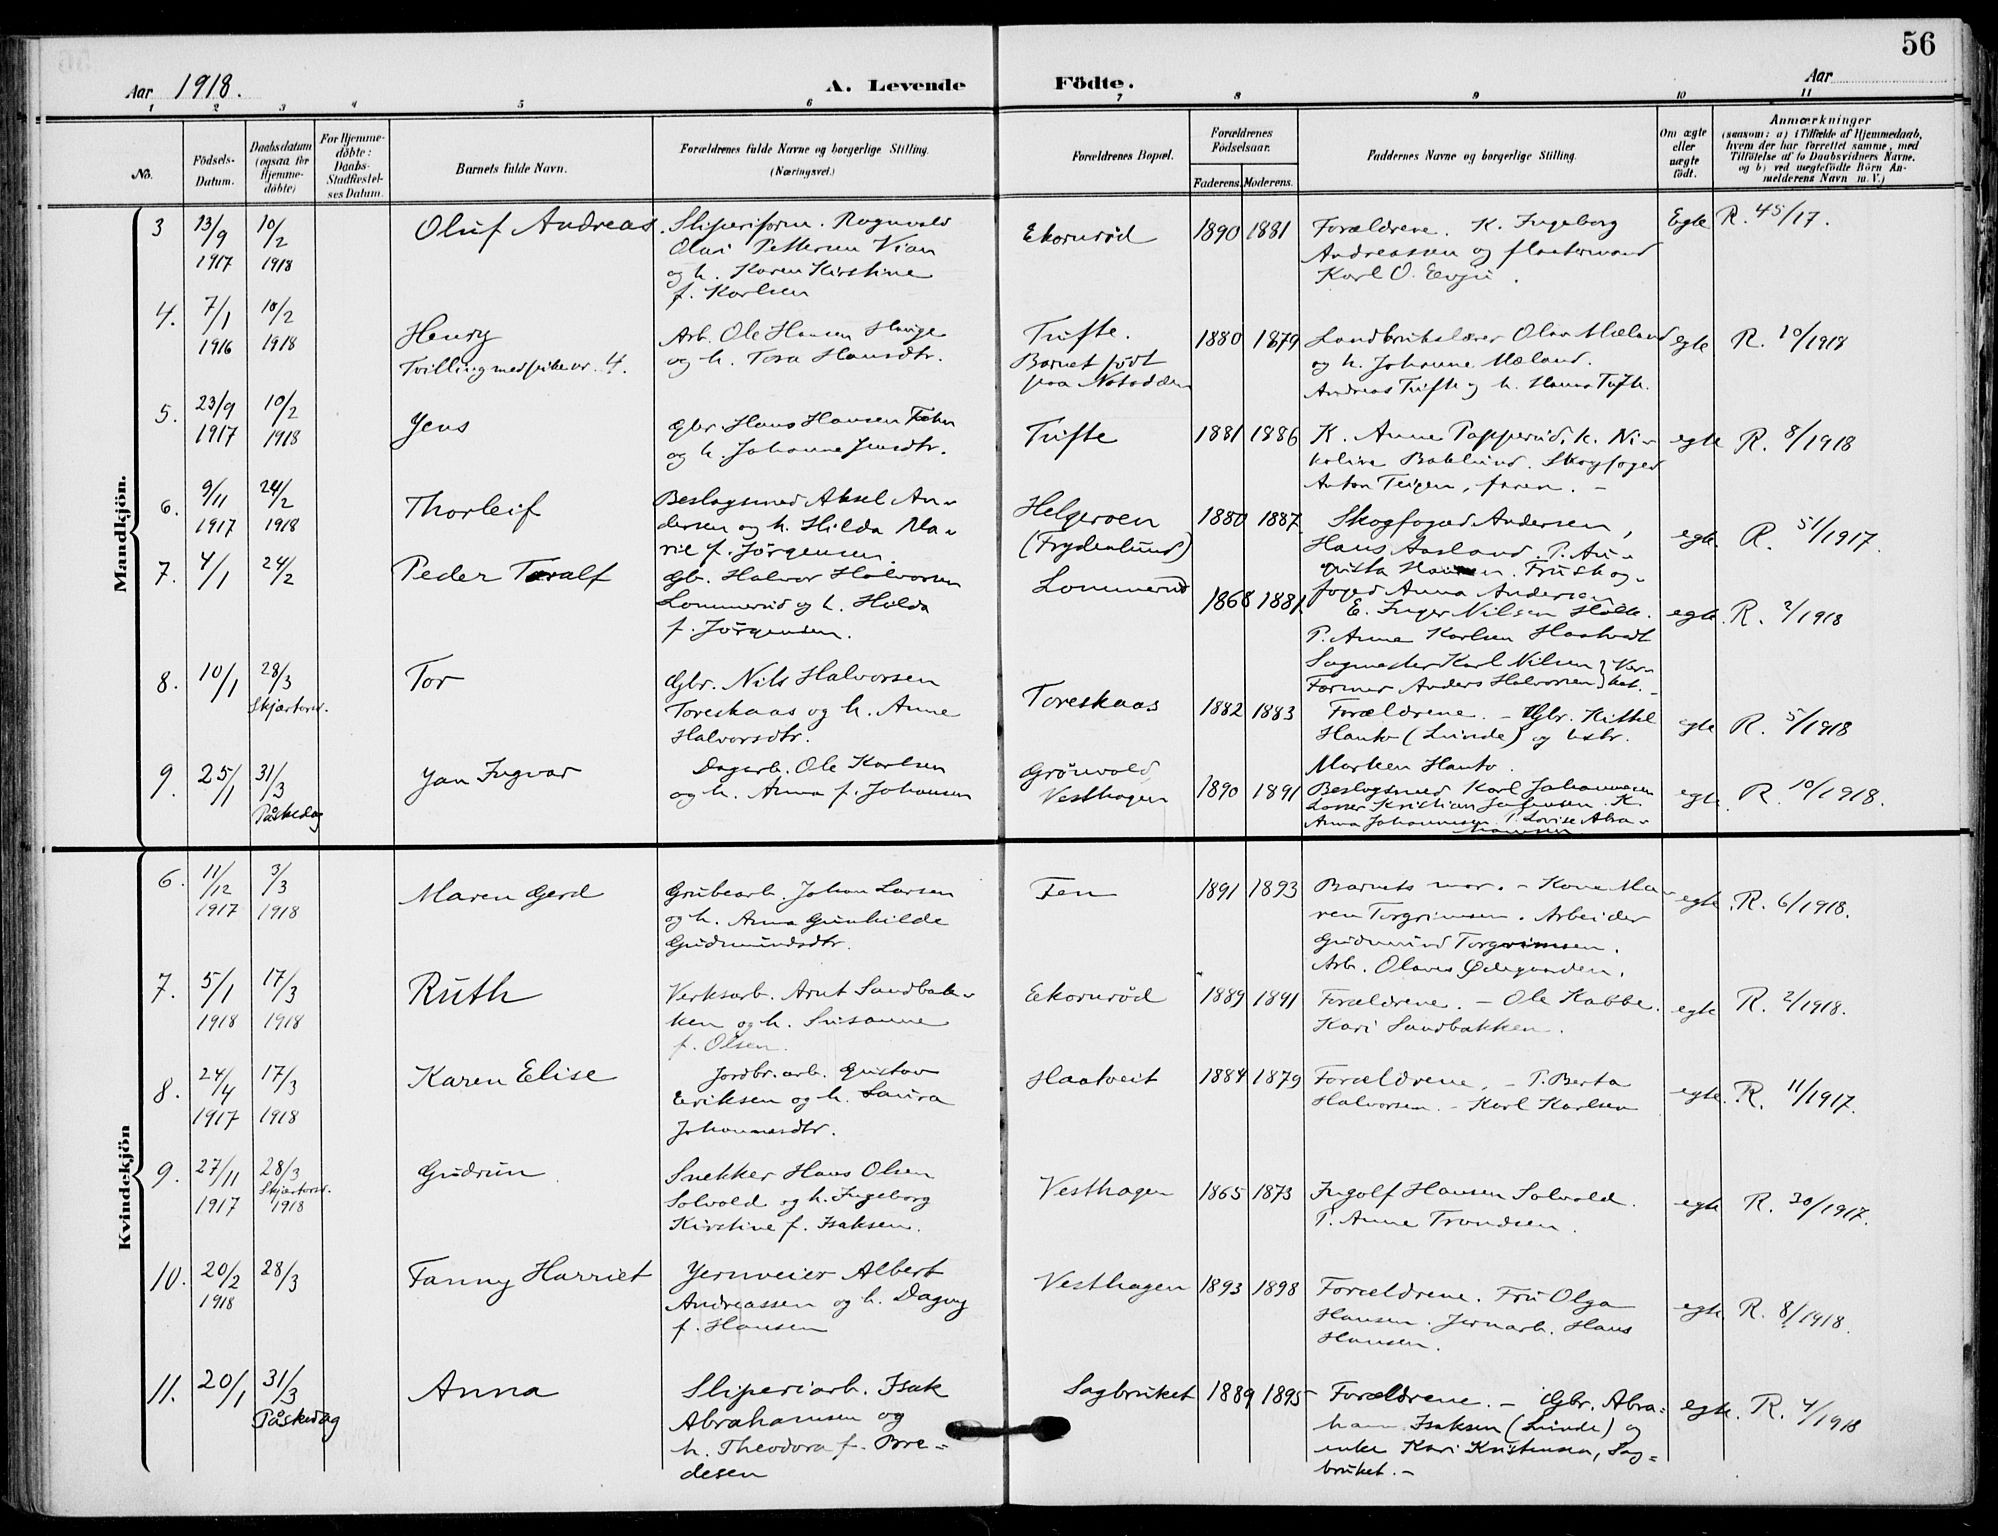 56
Aar 1918.
A. Levende Födte.
Aar
1 2 3 4 5 6 7 8 9 10 11
No.
Födsels-Datum.
Daabsdatum (ogsaa for Hjemme-döbte)
For Hjemme-döbte: Daabs-Stadfæstel-ses Datum.
Barnets fulde Navn.
Forældrenes fulde Navne og borgerlige Stilling.
(Næringsvei.)
Forældrenes Bopæl.
Forældrenes Födselsaar.
Faderens. Moderens.
Faddernes Navne og borgerlige Stilling.
Om ægte eller uægte födt.
Anmærkninger
(saasom: a) i Tilfælde af Hjemmedaab,
hvem der har forrettet samme, med
Tilföielse af to Daabsvidners Navne.
og b) ved uægtefödte Börn An-
melderens Navn m. V.)
Mandkjön.
3 13/9 1917 10/2 1918 Oluf Andreas.
Sliperiform. Ragnvald
Olai Pettersen Vian
og h. Karen Kirstine
f. Karlsen
Ekornröd 1890 1881
Forældrene. K. Ingeborg
Andreassen og fløtermand
Karl O. Evju.
Egte R. 45/17.
4. 7/1 1916 10/2 1918 Henry
Tvilling med pike nr. 4.
Arb. Ole Hansen
og h. Tora Hansdtr.
Tufte.
Barnet födt
paa Notodden
1880 1879
Landbrukslærer Olav Mæland
og h. Johanne Mæland.
Andreas Tufte og h. Hanna Tufte.
egte R. 10/1918
5. 23/9 1917 10/2 1918 Jens
Gbr. Hans Hansen
og h. Johanne Jensdtr.
Tufte 1881 1886
K. Anne Papperud, k. Ni-
koline Baklund. Skogfoged
Anton Teigen, faren. -
egte R. 8/1918
6. 9/11 1917 24/2 1918 Thorleif
Beslagsmed Aksel An-
dersen og h. Hilda Ma-
rie f. Jörgensen.
Helgeroen
(Frydenlund)
1880 1887
Skogfoged Andersen,
Hans Aasland. P. Au-
gusta Hansen. Fru Skog-
foged Anna Andersen
egte. R. 51/1917.
7. 4/1 24/2 Peder Toralf
Gbr. Halvor Halvorsen
Lommerud og h. Hilda
f. Jörgensen.
Lommerud 1868 1881
E. Inger Nilsen Holte.
P. Anne Karlsen Haatvedt
Sagmester Karl Nilsen } Ver-
Former Anders Halvorsen } ket. -
egte. R. 2/1918
8. 10/1 28/3 Skjærtorsd. Tor
Gbr. Nils Halvorsen
Toreskaas og h. Anne
Halvorsdtr.
Toreskaas 1882 1883
Forældrene. - Gbr. Kittil
Hanto (Lunde) og hstr.
Marken Hanto.
egte R. 5/1918
9. 25/1 31/3 Påskedag Jan Ingvar
Dagarb. Ole Karlsen
og h. Anna f. Johansen
Grönvold,
Vesthagen
1890 1891
Beslagsmed Karl Johannesen
Losser Kristian Johansen. K.
Anna Johannesen. P. Lovise Abra-
hamsen
egte R. 10/1918.
Kvindekjön
6. 11/12 1917 3/3 1918 Maren Gerd
Grubearb. Johan Larsen
og h. Anna Gunhilde
Gudmundsdtr.
Fen 1891 1893
Barnets mor. - Kone Ma-
ren Torgrimsen. Arbeider
Gudmund Torgrimsen.
Arb. Olaves Ödegaarden.
egte. R. 6/1918.
7. 5/1 1918 17/3 1918 Ruth
Verksarb. Arnt Sandbak-
ken og h. Susanne
f. Olsen.
Ekornröd 1889 1891
Forældrene. - Ole Kabbe.
Kari Sandbakken.
egte R. 2/1918.
8. 24/4 1917 17/3 1918 Karen Elise
Jordbr. arb. Gustav
Eriksen og h. Laura
Johannesdtr.
Haatveit 1884 1879
Forældrene. - P. Berta
Halvorsen. - Karl Karlsen
egte. R. 11/1917.
9. 27/11 1917 28/3 Skjærtorsd. 1918 Gudrun
Snekker Hans Olsen
Solvold og h. Ingeborg
Kirstine f. Isaksen.
Vesthagen 1865 1873
Ingolf Hansen Solvold.
P. Anne Trondsen.
egte R. 30/1917.
10. 20/2 1918 28/3 Fanny Harriet
Jernveier Albert
Andreassen og h. Dagny
f. Hansen
Vesthagen 1893 1898
Forældrene. Fru Olga
Hansen. Jernarb. Hans
Hansen.
egte. R. 8/1918.
11. 20/1 31/3 Påskedag Anna
Sliperiarb. Isak
Abrahamsen og
h. Theodora f. Bre-
desen
Sagbruket 1889 1895
Forældrene. - Gbr. Abra-
ham Isaksen (Lunde) og
enke Kari Kristensen, Sag-
bruket. -
egte. R. 4/1918